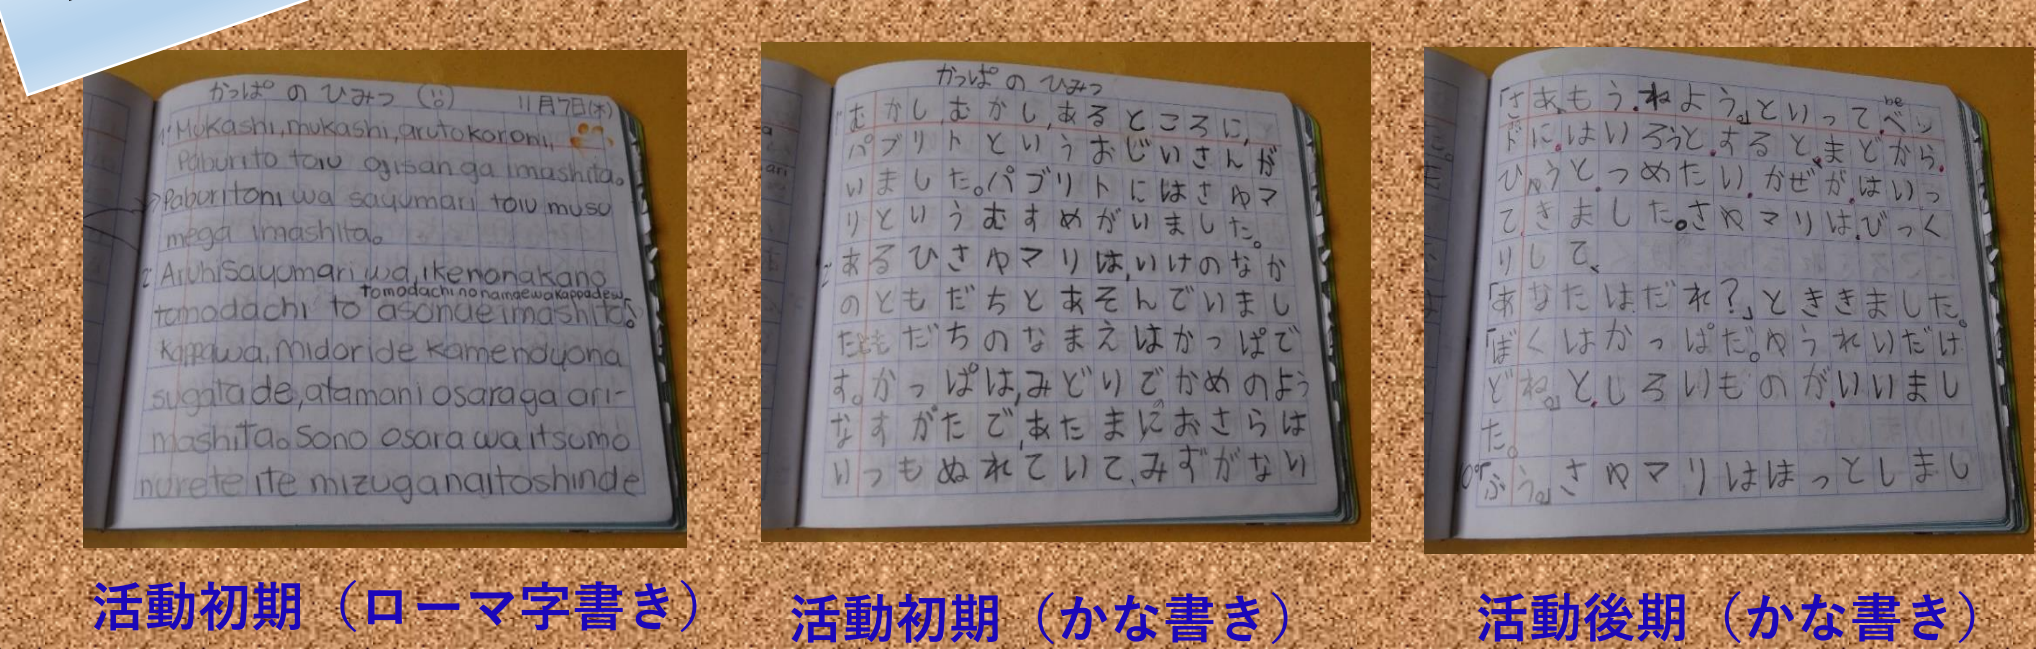 かっぱ の ひみつ
11月7日(木)
1. Mukashi,mukashi,arutokoroni,
Paburito toiu ojisan ga imashita。
Paburitoni wa sayumari toiu musu
mega imashita。
2. Aruhisayumari wa,ikenonakano
tomodachinonamaewakappadesu
tomodachi to asondeimashita。
Kappawa,midoride kamenoyona
sugatade,atamani osaraga ari-
mashita。Sono osara wa itsumo
nurete ite mizuganaitoshinde
活動初期（ローマ字書き）
かっぱ の ひみつ
むかし,むかし,あるところに,
パブリトというおじいさんが
いました。パブリトにはさゆマ
りというむすめがいました。
あるひさゆマりは,いけのなか
のともだちとあそんでいまし
たともだちのなまえはかっぱで
す。かっぱは,みどりでかめのよう
なすがたで,あたまにおさらは
いっもぬれていて、みずがない
活動初期（かな書き）
「さあ,もう,ねよう。」といって,ベッ
be
ドに,はいろうと,すると,まどから,
ひゅうと,つめたい,かぜが,はいっ
て,きました。さゆマリは,びっく
りして、
「あなたはだれ?」とききました。
「ぼくはかっぱだ。ゆうれいだけ
どね。」と,しろいものが,いいまし
た。
10.「ぶう。」さゆマリははっとしまし
活動後期（かな書き）